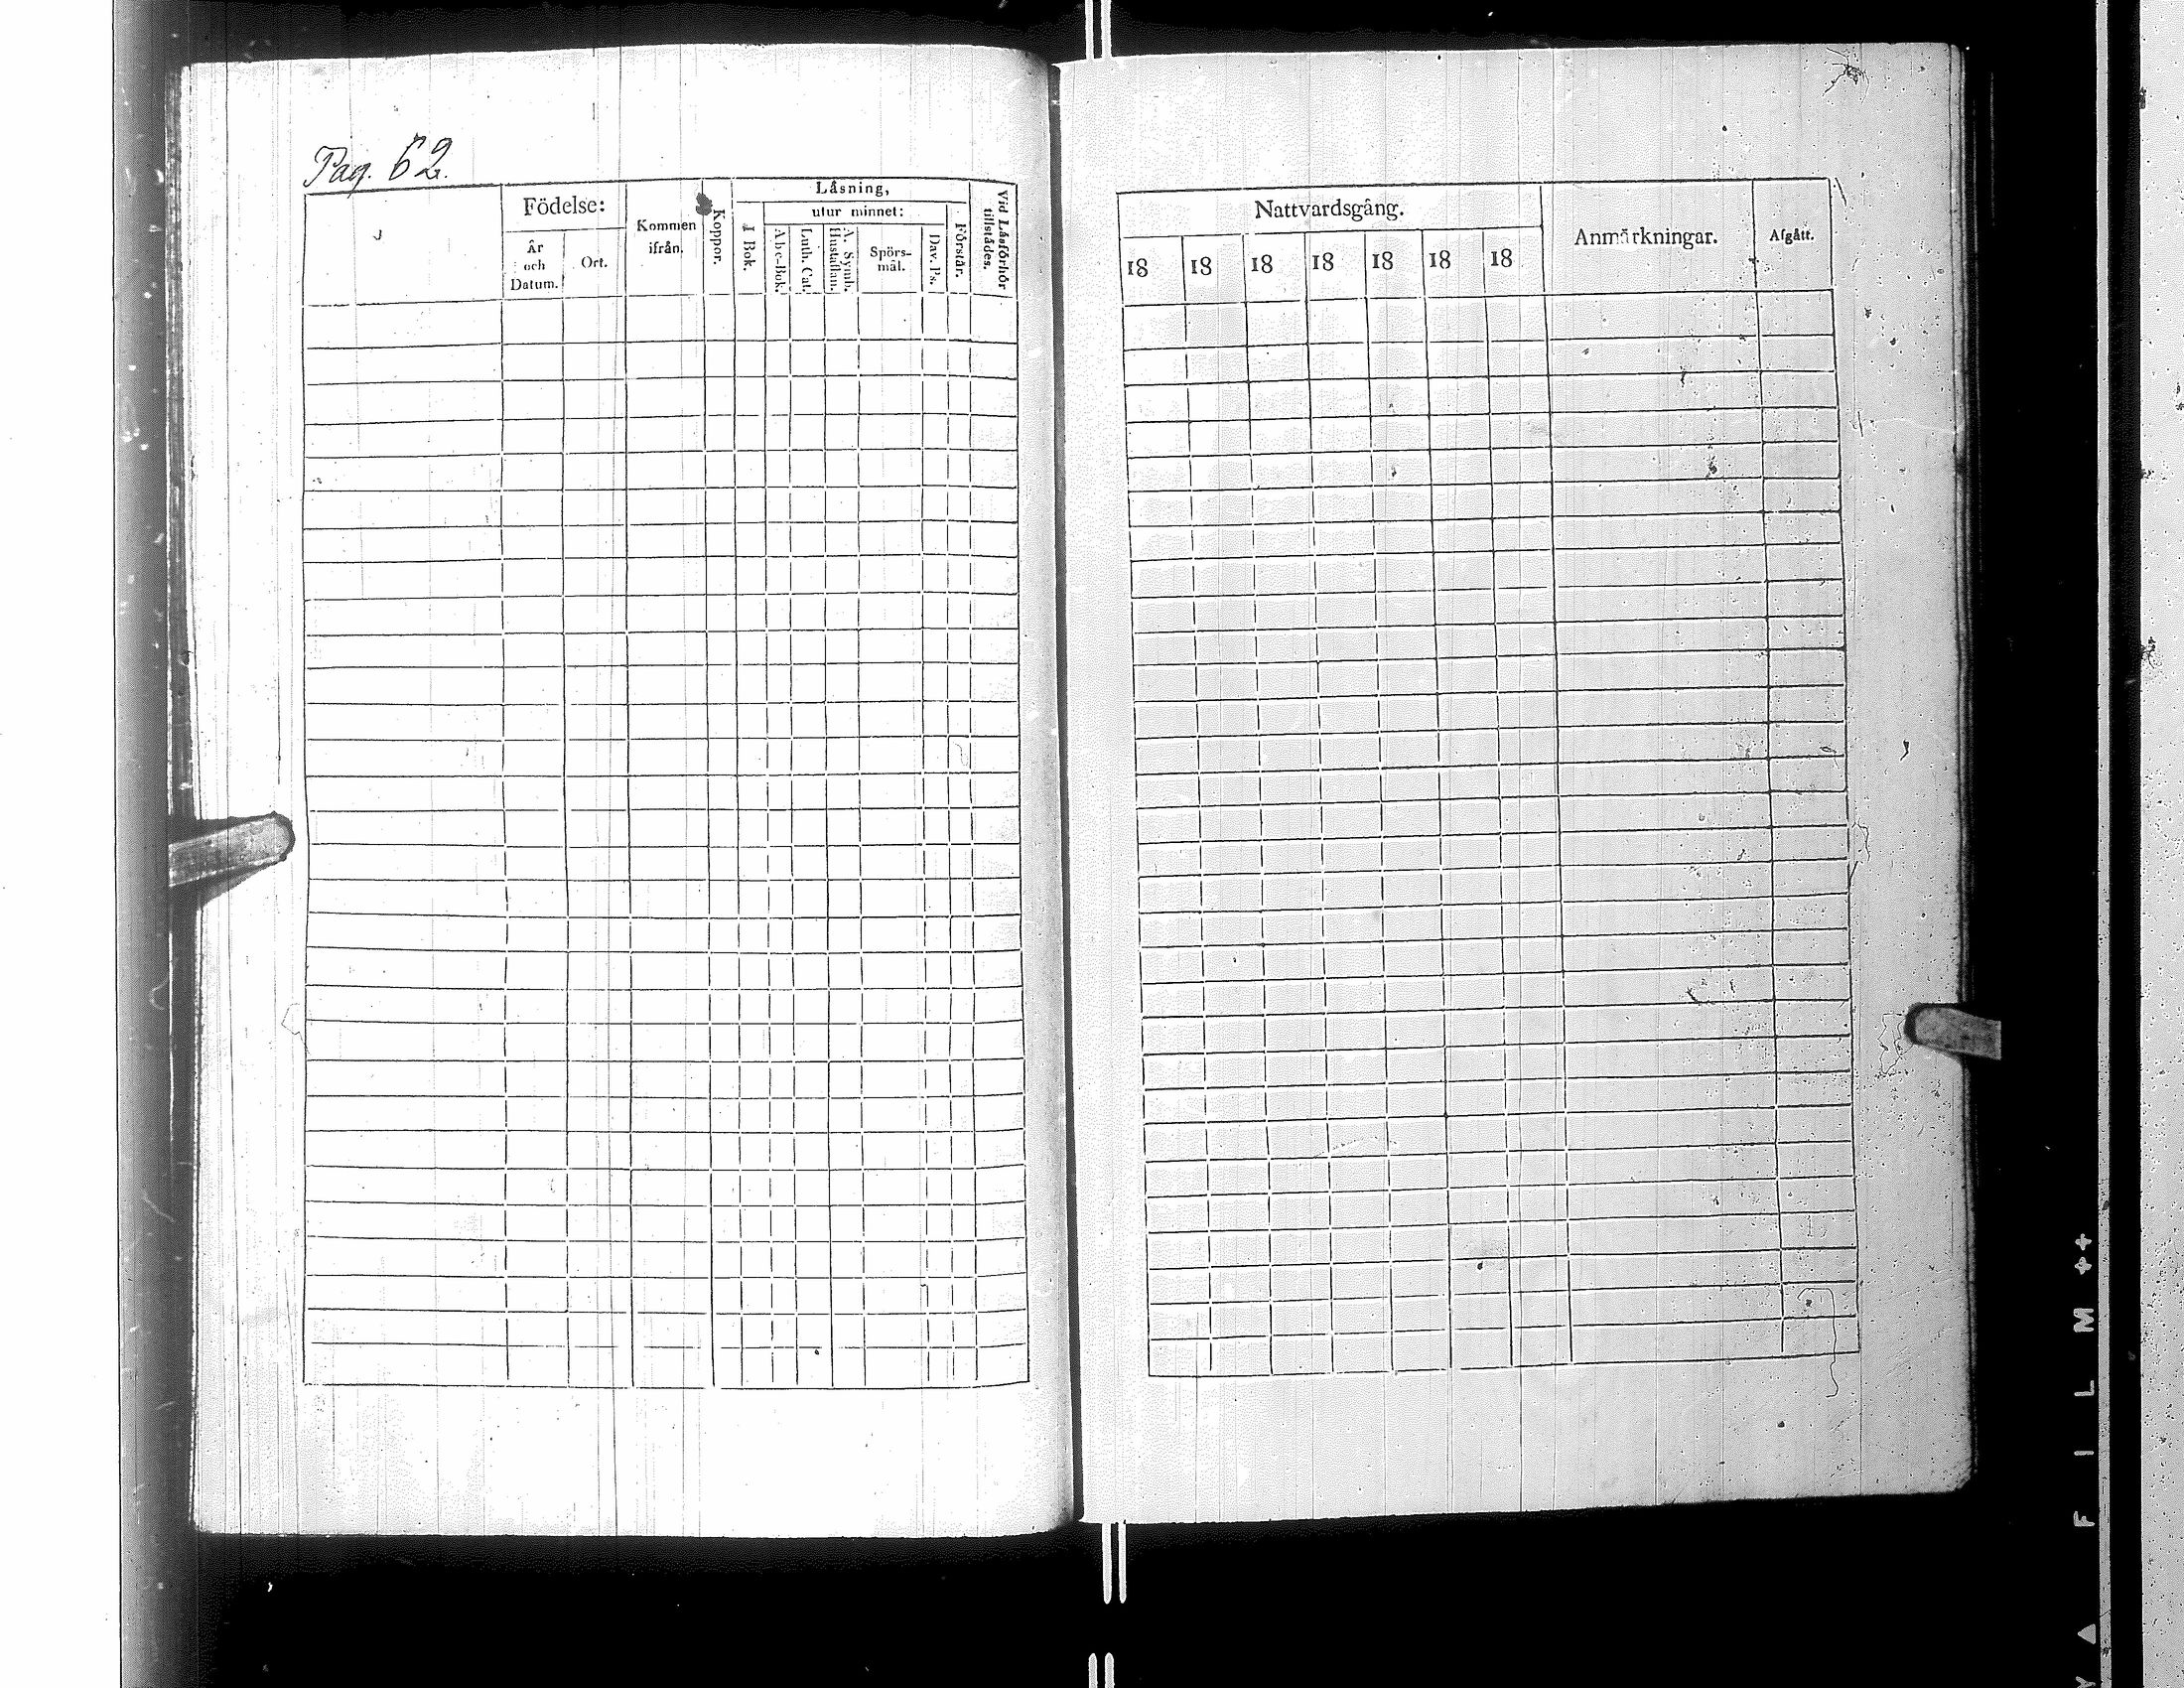 Pag. 62.
Födelse:
År
och
Datum.
Ort.
Kommen
ifrån.
Koppor.
Läsning,
I Bok.
utur minnet:
Abc-Bok.
Luth. Cat.
A. Symb.
Hustaflan.
Spörs-
mål.
Dav. Ps.
Förstår.
Vid Läsförhör
tillstådes.
Nattvardsgång.
18 18 18 18 18 18 18
Anmärkningar.
Afgått.
F I L M